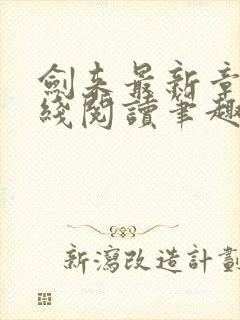 劍来最新章
綫閱讀筆趣
新瀉改造計劃